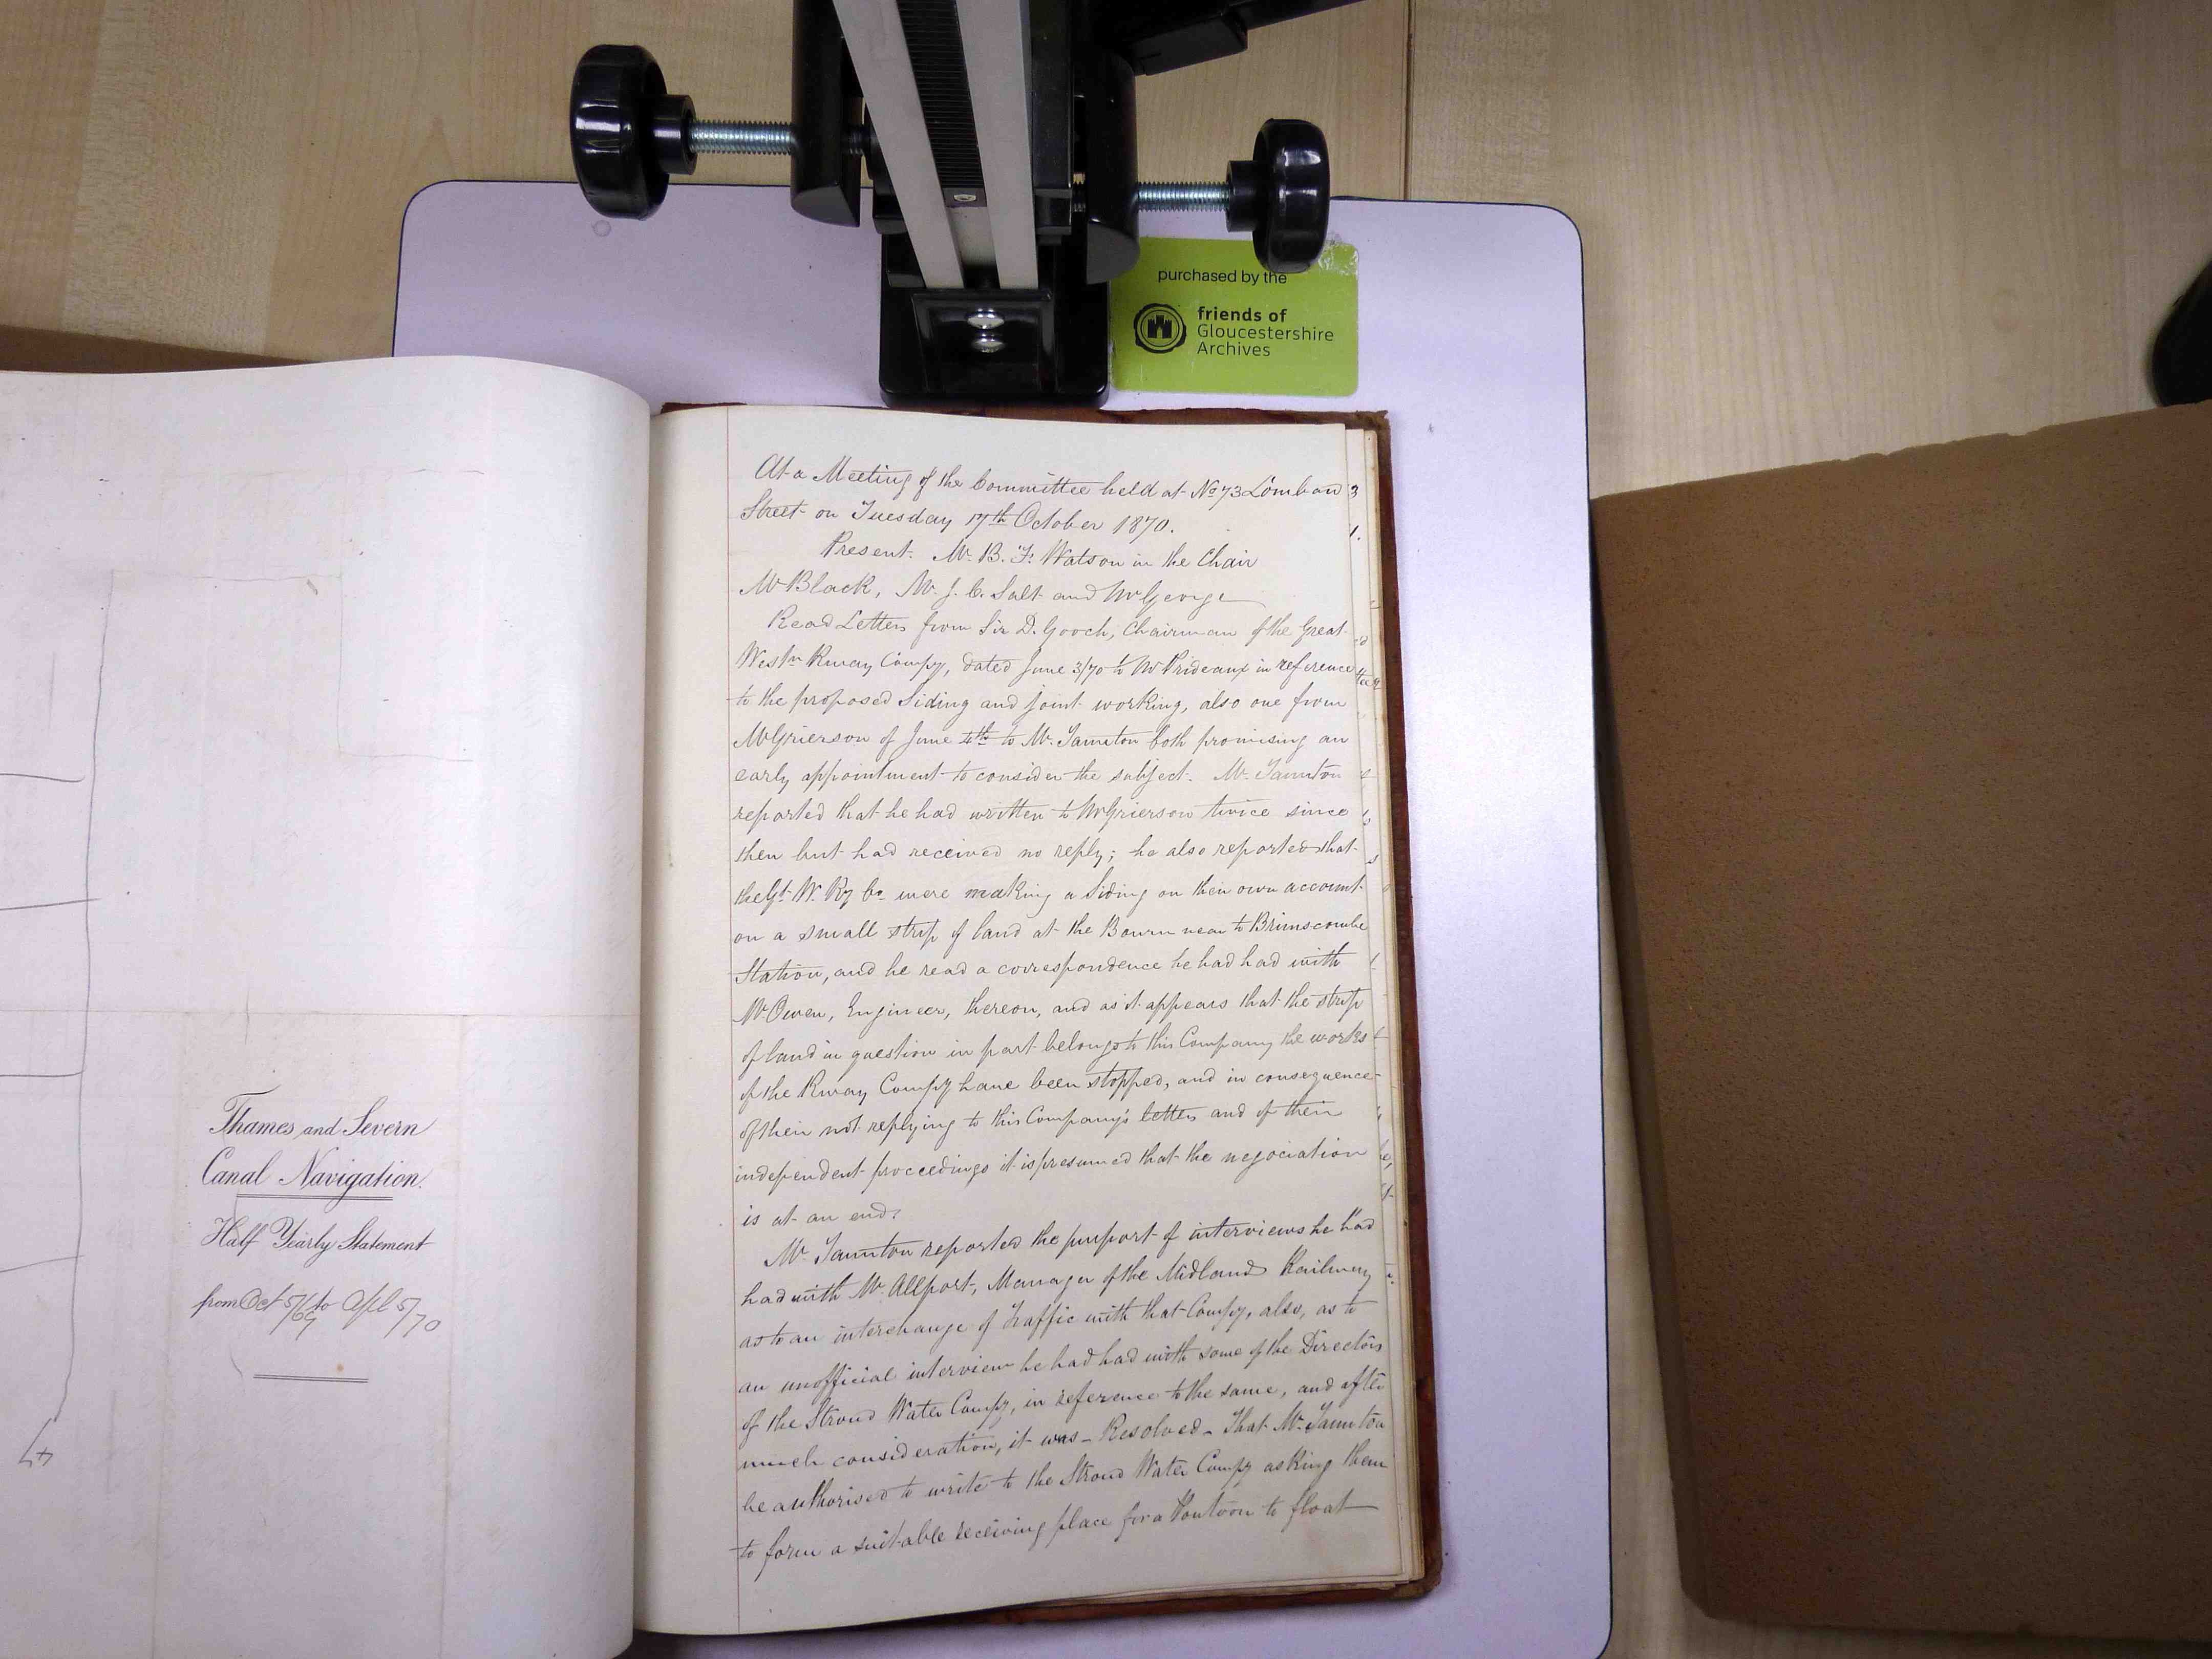 purchased by the
friends of
Gloucestershire
Archives
Thames and Severn
Canal Navigation.
Half Yearly Statement
from Oct 5/69 to Apl 5/70
At a Meeting of the Committee held at No 73 Lombard
Street on Tuesday 17th October 1870.
Present. Mr. B. F. Watson in the Chair
Mr Black, Mr. J. C. Salt and Mr George
Read Letters from Sir D. Gooch, Chairman of the Great
Westn Rway Compy, dated June 3/70 to Mr Prideaux in reference
to the proposed Siding and joint working, also one from
Mr Grierson of June 4th to Mr. Taunton both promising an
early appointment to consider the subject. Mr. Taunton
reported that he had written to Mr Grierson twice since
then but had received no reply; he also reported that
the Gt. W. Ry Co. were making a Siding on their own account
on a small strip of land at the Bourn near to Brimscombe
Station, and he read a correspondence he had had with
Mr. Owen, Engineer, thereon, and as it appears that the strip
of land in question in part belongs to this Company the works
of the Rway Compy have been stopped, and in consequence
of their not replying to this Company's letters and of their
independent proceedings it is presumed that the negociation
is at an end.
Mr. Taunton reported the purport of interviews he had
had with Mr. Allport, Manager of the Midland Railway
as to an interchange of Traffic with that Compy, also, as to
an unofficial interview he had had with some of the Directors
of the Stroud Water Compy, in reference to the same, and after
much consideration, it was - Resolved - That Mr. Taunton
be authorised to write to the Stroud Water Compy asking them
to form a suitable receiving place for a Pontoon to float